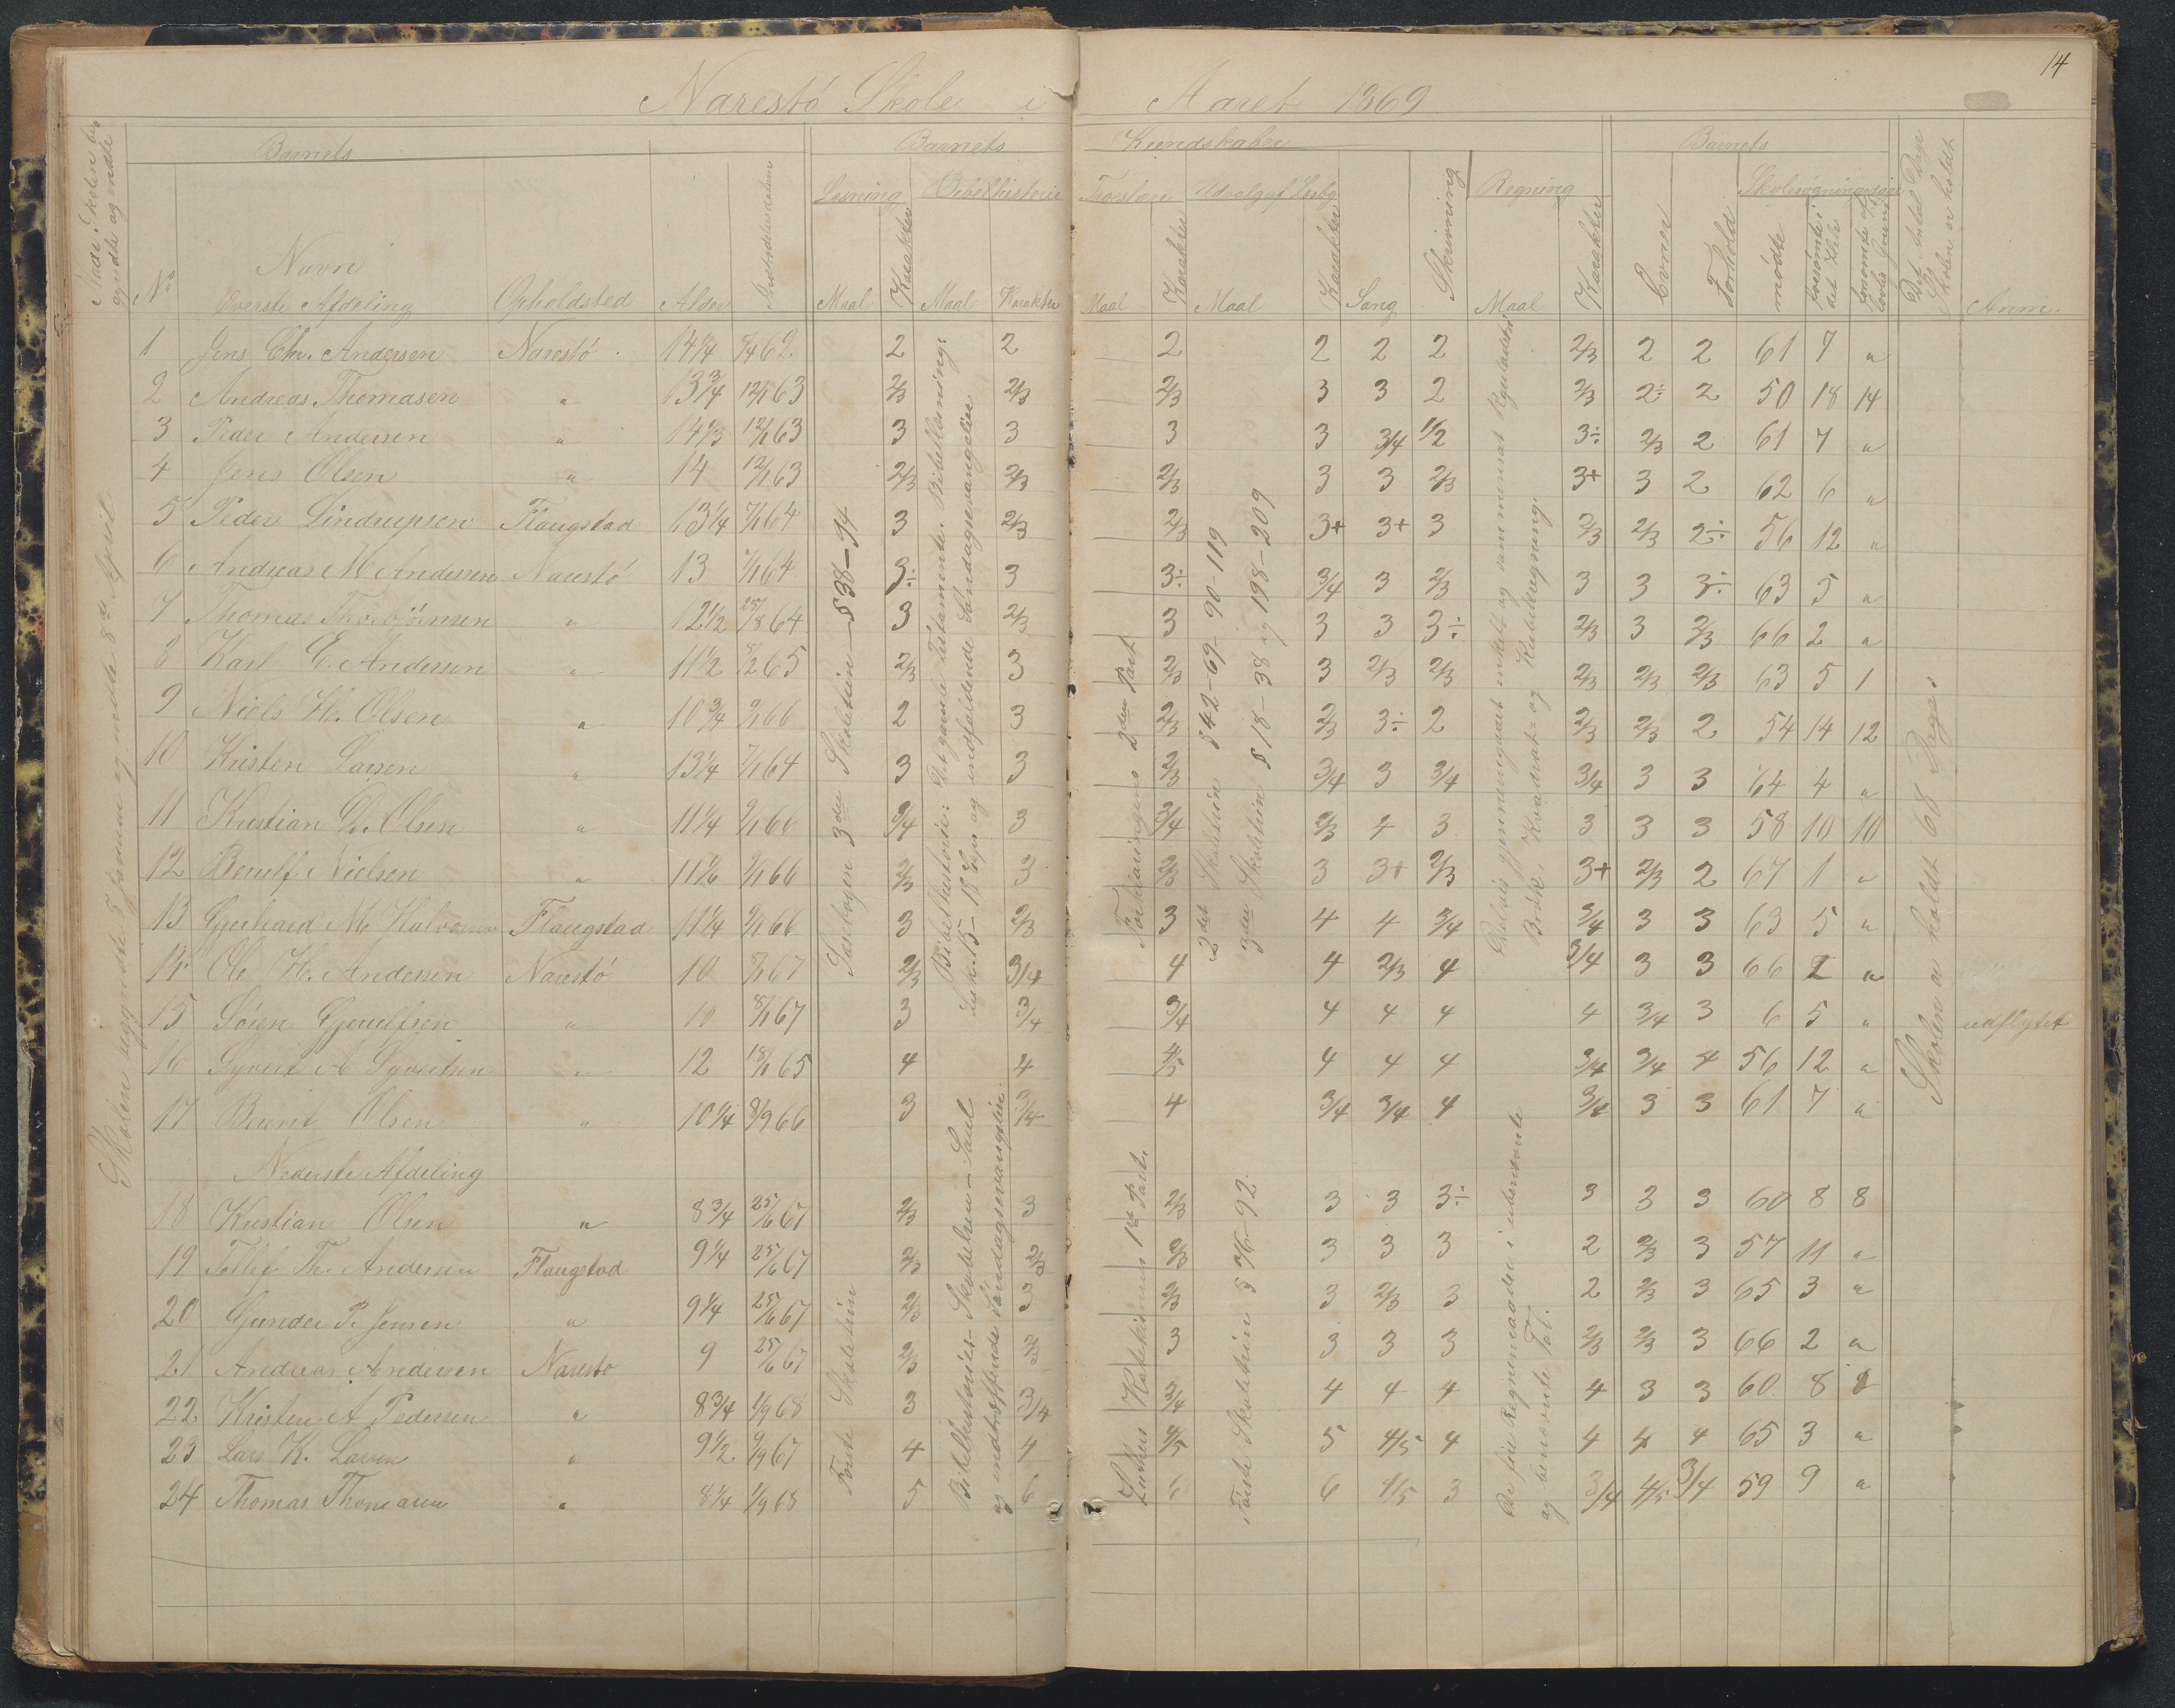 14
Narestö Skole i Aaret 1869
Naar Skolen begyndte og endte
Barnets
Barnets Kundskaber
Barnets
Det Antal Dage Skolen er holdt
Anm.
No
Navn
Överste Afdeling
Opholdsted
Alder
Indtrædelsesdatum
Læsning
Maal
Karakter
Bibelhistorie
Maal
Karakter
Troeslære
Maal
Karakter
Udvalg af Læseb.
Maal
Karakter
Sang
Skrivning
Regning
Maal
Karakter
Evner
Forhold
Skolesøgningsdage
mödte
forsömte i det Hele
forsömte af lovlig Grund
1 Jens Chr. Andersen Narestö 14 1/4 7/4 62 2 2 2 2 2 2 2/3 2 2 61 7 "
2 Andreas Thomasen " 13 3/4 12/1 63 2/3 2/3 2/3 3 3 2 2/3 2÷ 2 50 18 14
3 Peder Andersen " 14 1/3 12/1 63 3 3 3 3 3/4 1/2 3÷ 2/3 2 61 7 "
4 Jens Olsen " 14 12/1 63 2/3 2/3 2/3 3 3 2/3 3+ 3 2 62 6 "
5 Peder Lindrupsen Flaugstad 13 1/4 7/1 64 3 2/3 2/3 3+ 3+ 3 2/3 2/3 2÷ 56 12 "
6 Andreas M Andersen Narestö 13 7/1 64 3÷ 3 3÷ 3/4 3 2/3 3 3 3÷ 63 5 "
7 Thomas Thorbjörnsen " 12 1/2 25/8 64 3 2/3 3 3 3 3÷ 2/3 3 2/3 66 2 "
8 Karl E. Andersen " 11 1/2 5/2 65 2/3 3 2/3 3 2/3 2/3 2/3 2/3 2/3 63 5 1
9 Niels H. Olsen " 10 3/4 9/1 66 2 3 2/3 2/3 3÷ 2 2/3 2/3 2 54 14 12
10 Kristen Larsen " 13 1/4 7/1 64 3 3 2/3 3/4 3 3/4 3/4 3 3 64 4 "
11 Kristian D. Olsen " 11 1/4 9/1 66 3/4 3 3/4 2/3 4 3 3 3 3 58 10 10
12 Berulf Nielsen " 11 1/6 9/1 66 2/3 3 2/3 3 3+ 2/3 3+ 2/3 2 67 1 "
13 Gjerhard M Halvorsen Flaugstad 11 1/4 9/1 66 3 2/3 3 4 4 3/4 3/4 3 3 63 5 "
14 Ole H. Andersen Narestö 10 8/1 67 2/3 3/4 4 4 2/3 4 3/4 3 3 66 2 "
15 Sören Gjerulfsen " 10 8/1 67 3 3/4 3/4 4 4 4 4 3/4 3 6 5 " udflyttet
16 Syvert A Syvertsen " 12 18/1 65 4 4 4/5 4 4 4 3/4 3/4 4 56 12 "
17 Berent Olsen " 10 1/4 8/9 66 3 3/4 4 3/4 3/4 4 3/4 3 3 61 7 "
Nederste Afdeling
18 Kristian Olsen " 8 3/4 25/6 67 2/3 3 2/3 3 3 3÷ 3 3 3 60 8 8
19 Tellef Th. Andersen Flaugstad 9 1/4 25/6 67 2/3 2/3 2/3 3 3 3 2 2/3 3 57 11 "
20 Gunder P. Jensen " 9 1/4 25/6 67 2/3 3 2/3 3 2/3 3 2 2/3 3 65 3 "
21 Andreas Andersen Narestö 9 25/6 67 2/3 2/3 3 3 3 3 2/3 2/3 3 66 2 "
22. Kristen A Pedersen " 8 3/4 1/9 68 3 3/4 3/4 4 4 4 4 3 3 60 8 8
23 Lars K. Larsen " 9 1/2 9/9 67 4 4 4/5 5 4/5 4 4 4 4 65 3 "
24 Thomas Thomasen " 8 1/4 1/9 68 5 6 6 6 4/5 3 3/4 4/5 3/4 59 9 "
Skolen begyndte 8 Januar og endte 8de April
Læsebogen 3die Skoletrin § 38–94
Bibelhistorie: Det gamle Testamente. Bibellæsning: Luk. 15–18 Kap. og indfaldende Söndagsevangelier
Forklaringens 2den Part
2det Skoletrin § 42–69 90–119
3die Skoletrin § 18–38 og 198–209
Delvis gjennemgaaet enkelt og sammensat Reguladetri
Brök, Kvadrat- og Kubikregning.
Skolen er holdt 68 Dage.
Förste Skoletrin
Bibelhistorie: Skabelsen – Saul
og indtræffende Söndagsevangelier
Luthers Katekismus 1ste Part.
Förste Skoletrin § 76–92.
De fire Regningsarter i ubenævnte
og benævnte Tal.